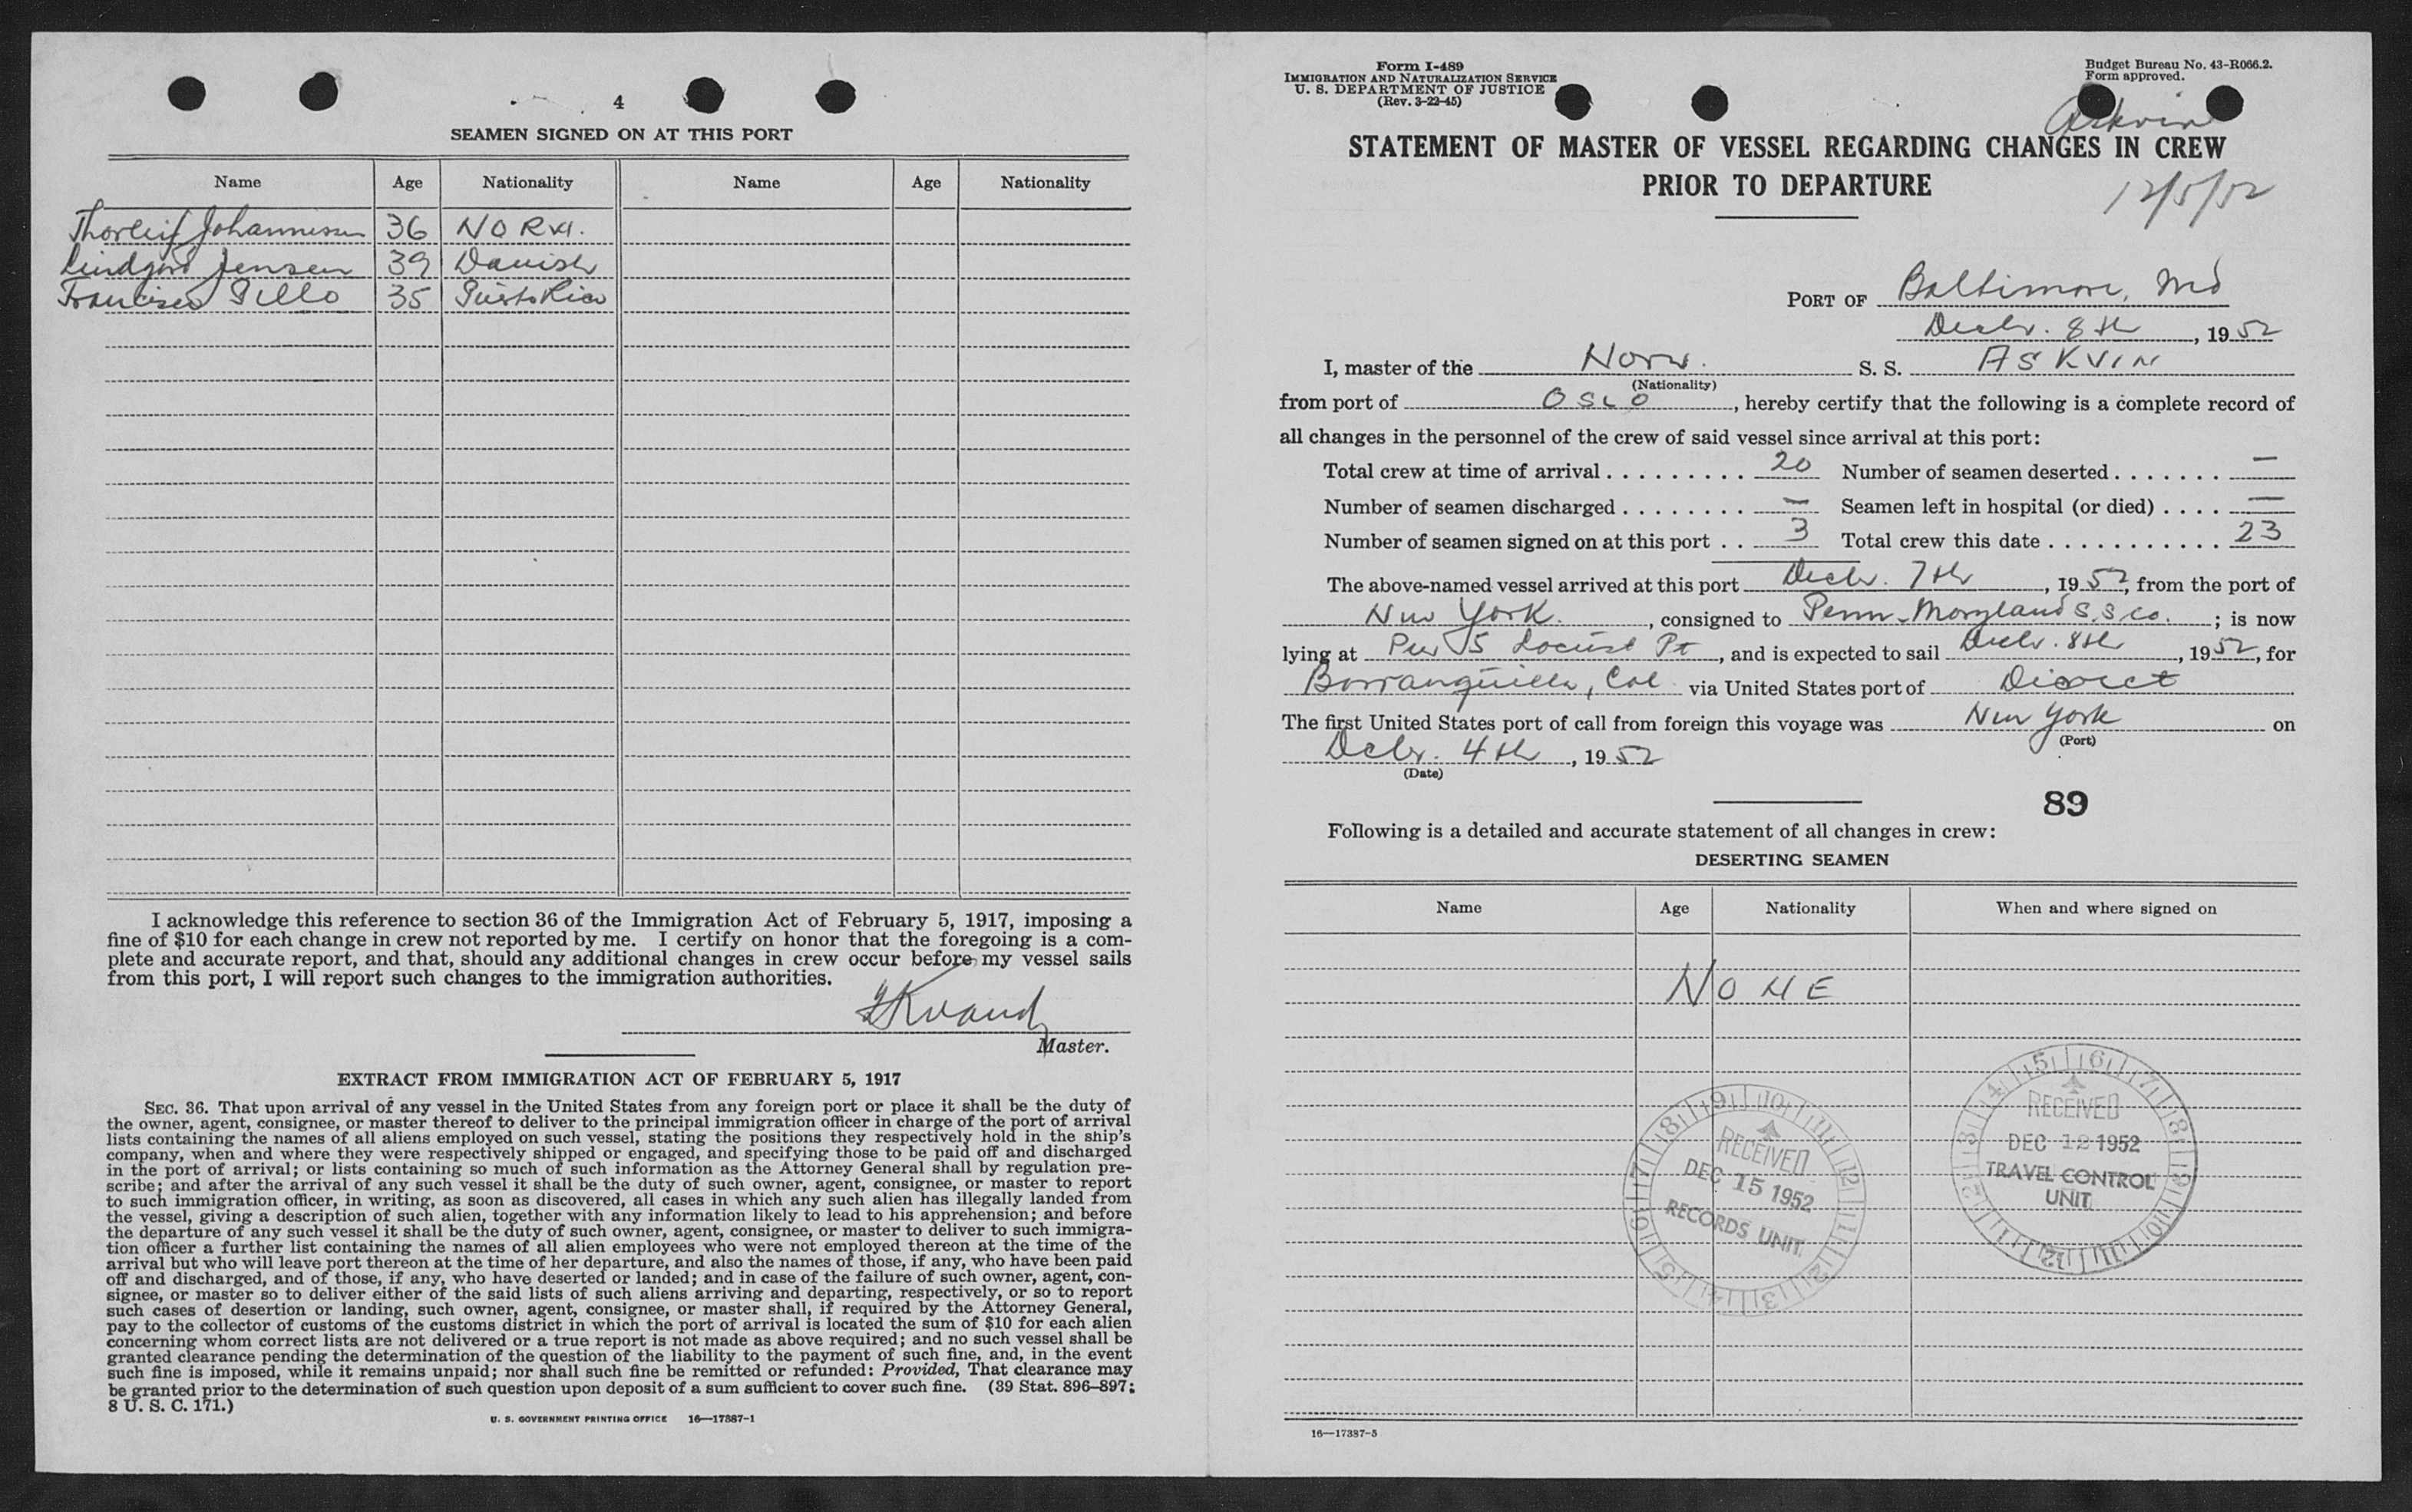 4
SEAMEN SIGNED ON AT THIS PORT
Name Age Nationality Name Age Nationality
Thorleif Johannissen 36 NORW.
Jensen 39 Danish
Francisco Pillo 35 Puerto Rico
I acknowledge this reference to section 36 of the Immigration Act of February 5, 1917, imposing a
fine of $10 for each change in crew not reported by me. I certify on honor that the foregoing is a com-
plete and accurate report, and that, should any additional changes in crew occur before my vessel sails
from this port, I will report such changes to the immigration authorities.
Master.
EXTRACT FROM IMMIGRATION ACT OF FEBRUARY 5, 1917
SEC. 36. That upon arrival of any vessel in the United States from any foreign port or place it shall be the duty of
the owner, agent, consignee, or master thereof to deliver to the principal immigration officer in charge of the port of arrival
lists containing the names of all aliens employed on such vessel, stating the positions they respectively hold in the ship's
company, when and where they were respectively shipped or engaged, and specifying those to be paid off and discharged
in the port of arrival; or lists containing so much of such information as the Attorney General shall by regulation pre-
scribe; and after the arrival of any such vessel it shall be the duty of such owner, agent, consignee, or master to report
to such immigration officer, in writing, as soon as discovered, all cases in which any such alien has illegally landed from
the vessel, giving a description of such alien, together with any information likely to lead to his apprehension; and before
the departure of any such vessel it shall be the duty of such owner, agent, consignee, or master to deliver to such immigra-
tion officer a further list containing the names of all alien employees who were not employed thereon at the time of the
arrival but who will leave port thereon at the time of her departure, and also the names of those, if any, who have been paid
off and discharged, and of those, if any, who have deserted or landed; and in case of the failure of such owner, agent, con-
signee, or master so to deliver either of the said lists of such aliens arriving and departing, respectively, or so to report
such cases of desertion or landing, such owner, agent, consignee, or master shall, if required by the Attorney General,
pay to the collector of customs of the customs district in which the port of arrival is located the sum of $10 for each alien
concerning whom correct lists are not delivered or a true report is not made as above required; and no such vessel shall be
granted clearance pending the determination of the question of the liability to the payment of such fine, and, in the event
such fine is imposed, while it remains unpaid; nor shall such fine be remitted or refunded: Provided, That clearance may
be granted prior to the determination of such question upon deposit of a sum sufficient to cover such fine. (39 Stat. 896–897;
8 U. S. C. 171.)
U. S. GOVERNMENT PRINTING OFFICE 16—17387-1
Form I-489
IMMIGRATION AND NATURALIZATION SERVICE
U. S. DEPARTMENT OF JUSTICE
(Rev. 3-22-45)
Budget Bureau No. 43-R066.2.
Form approved.
Askvin
STATEMENT OF MASTER OF VESSEL REGARDING CHANGES IN CREW
PRIOR TO DEPARTURE
12/5/52
PORT OF Baltimore, Md
Decbr. 8th, 1952
I, master of the Norw. S. S. ASKVIN
(Nationality)
from port of OSLO, hereby certify that the following is a complete record of
all changes in the personnel of the crew of said vessel since arrival at this port:
Total crew at time of arrival 20 Number of seamen deserted —
Number of seamen discharged — Seamen left in hospital (or died) —
Number of seamen signed on at this port 3 Total crew this date 23
The above-named vessel arrived at this port Decbr. 7th, 1952, from the port of
New York, consigned to Penn-Maryland S.S Co.; is now
lying at Pier 5 Locust Pt, and is expected to sail Decbr. 8th, 1952, for
Barranquilla, Col via United States port of Direct
The first United States port of call from foreign this voyage was New York on
(Port)
Decbr. 4th, 1952
(Date)
89
Following is a detailed and accurate statement of all changes in crew:
DESERTING SEAMEN
Name Age Nationality When and where signed on
NONE
RECEIVED
DEC 15 1952
RECORDS UNIT
RECEIVED
DEC 12 1952
TRAVEL CONTROL
UNIT
16—17387-5